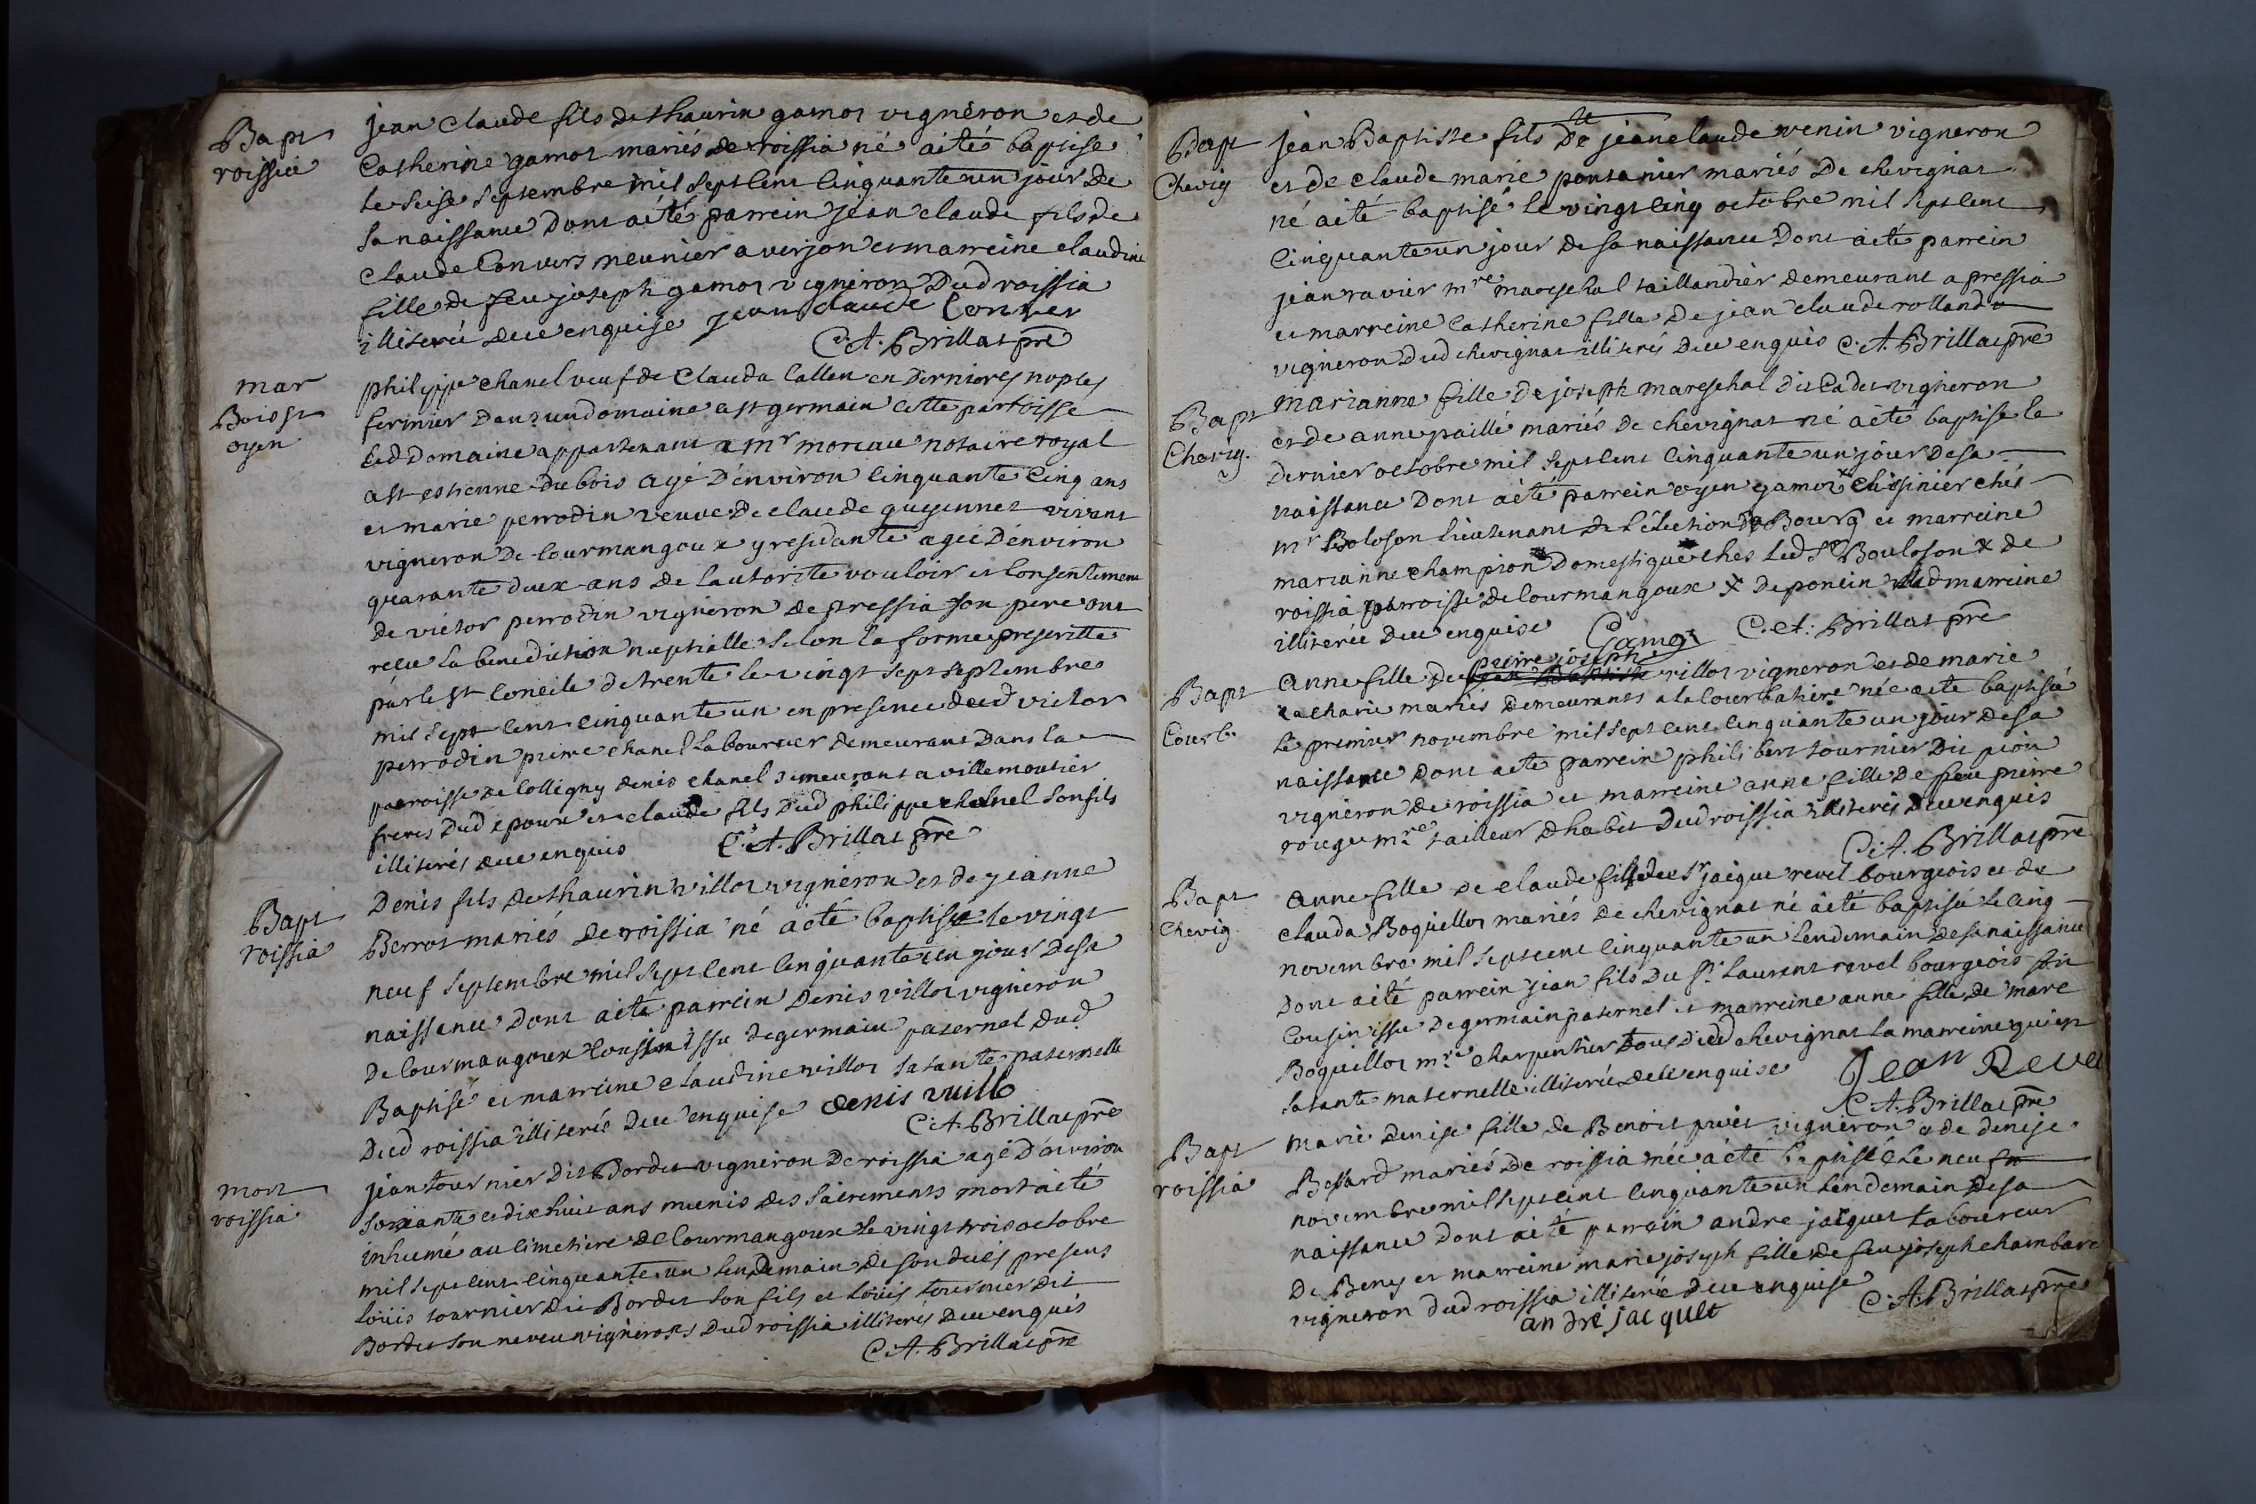 Bapt
roissia
jean claude fils de thaurin gamor vigneron et de
Catherine gamor mariés de roissia né aité baptisé
le seise septembre mil sept cent cinquante un jour de
sa naissance dont aété parrein jean claude fils de
claude Convers meunier a verjon et marreine claudine
fille de feu joseph gamor vigneron dud roissia
illiterée de ce enquise jean claude Conver
C. A. Brillat pre
mar
Bois st
oyen
philippe chanel veuf de Clauda Callen en dernieres nopces
fermier dans un domaine a st germain cette parroisse
led domaine appartenant a mr moreau notaire royal
a st estienne du bois agé d'environ cinquante cinq ans
et marie perrodin veuve de claude guyennet vivant
vigneron de Courmangoux y residante agée d'environ
quarante deux ans de lautorite vouloir et consentement
de victor perrodin vigneron de pressia son pere ont
recu la benediction nuptialle selon la forme prescritte
par le st Concile de trente le vingt sept septembre
mil sept cent cinquante un en presence dud victor
perrodin pierre chanel laboureur demeurant dans la
parroisse de Colligny denis chanel demeurant a villemoutier
freres dud epoux et claude fils dud philippe chanel son fils
illiterés de ce enquis C. A. Brillat pre
Bapt
roissia
Denis fils de thaurin villor vigneron et de jeanne
Berrot mariés de roissia né aété baptisé le vingt
neuf septembre mil sept cent cinquante un jour de sa
naissance dont aété parrein denis villor vigneron
de Courmangoux cousin issu de germain paternel dud
Baptisé et marreine claudine villor sa tante paternelle
dud roissia illiterée de ce enquise denis vuillo
C. A. Brillat pre
mort
roissia
jean tournier dit Bordet vigneron de roissia agé d'environ
soixante et dix huit ans munis des sacrements mort aété
inhumé au cimetiere de Courmangoux le vingt trois octobre
mil sept cent cinquante un lendemain de son decés presens
Loüis tournier dit Bordet son fils et Loüis tournier dit
Bordet son neveu vignerons dud roissia illiterés de ce enquis
C. A. Brillat pre
Bapt
Chevig
jean Baptiste fils de jean claude venin vigneron
et de claude marie pontanier mariés de chevignat
né aité baptisé le vingt cinq octobre mil sept cent
cinquante un jour de sa naissance dont aété parrein
jean ravier mre mareschal taillandier demeurant a pressia
et marreine Catherine fille de jean claude rolland
vigneron dud chevignat illiterés de ce enquis C. A. Brillat pre
Bapt
Chevig.
marianne fille de joseph mareschal dit Cadet vigneron
et de anne paillé mariés de chevignat né aété baptisé le
dernier octobre mil sept cent cinquante un jour de sa
naissance dont aété parrein oyen gamor x cuisinier chés
mr Boloson lieutenant de l'élection de Bourg et marreine
marianne champion domestique ches led sr Bouloson x de
roissia parroisse de Courmangoux x de poncin lad marreine
illiterée de ce enquise Gamor C. A. Brillat pre
Bapt
Courb.
anne fille de pierre joseph villor vigneron et de marie
zacharie mariés demeurants a la Courbatiere née aeté baptisé
le premier novembre mil sept cent cinquante un jour de sa
naissance dont aeté parrein philibert tournier dit pion
vigneron de roissia et marreine anne fille de feu pierre
rouge mre tailleur d'habit dud roissia illiterés de ce enquis
C. A. Brillat pre
Bapt
Chevig
anne fille de claude fils de sr jacque revel bourgeois et de
clauda Boquillor mariés de chevignat né aété baptisé le cinq
novembre mil sept cent cinquante un lendemain de sa naissance
dont aité parrein jean fils du sr Laurent revel bourgeois son
Cousin issu de germain paternel et marreine anne fille de marc
Boquillor mre charpentier tous dud chevignat la marreine qui est
sa tante maternelle illiterée de ce enquise Jean Revel
C. A. Brillat pre
Bapt
roissia
marie denise fille de Benoit vigneron et de denise
Besard mariés de roissia née aété baptisée le neuf
novembre mil sept cent cinquante un lendemain de sa
naissance dont aité parrein andre jacquet laboureur
de Beny et marreine marie joseph fille de feu joseph chambard
vigneron dud roissia illiterée de ce enquise
andré jacquet C. A. Brillat pre